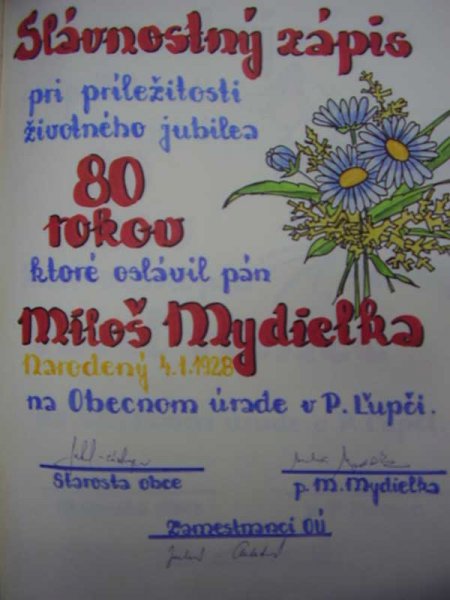 Slávnostný zápis
pri príležitosti
životného jubilea
80
rokov
ktoré oslávil pán
Miloš Mydielka
Narodený 4.1.1928
na Obecnom úrade v P. Ľupči.
Starosta obce
p. M. Mydielka
Zamestnanci OÚ